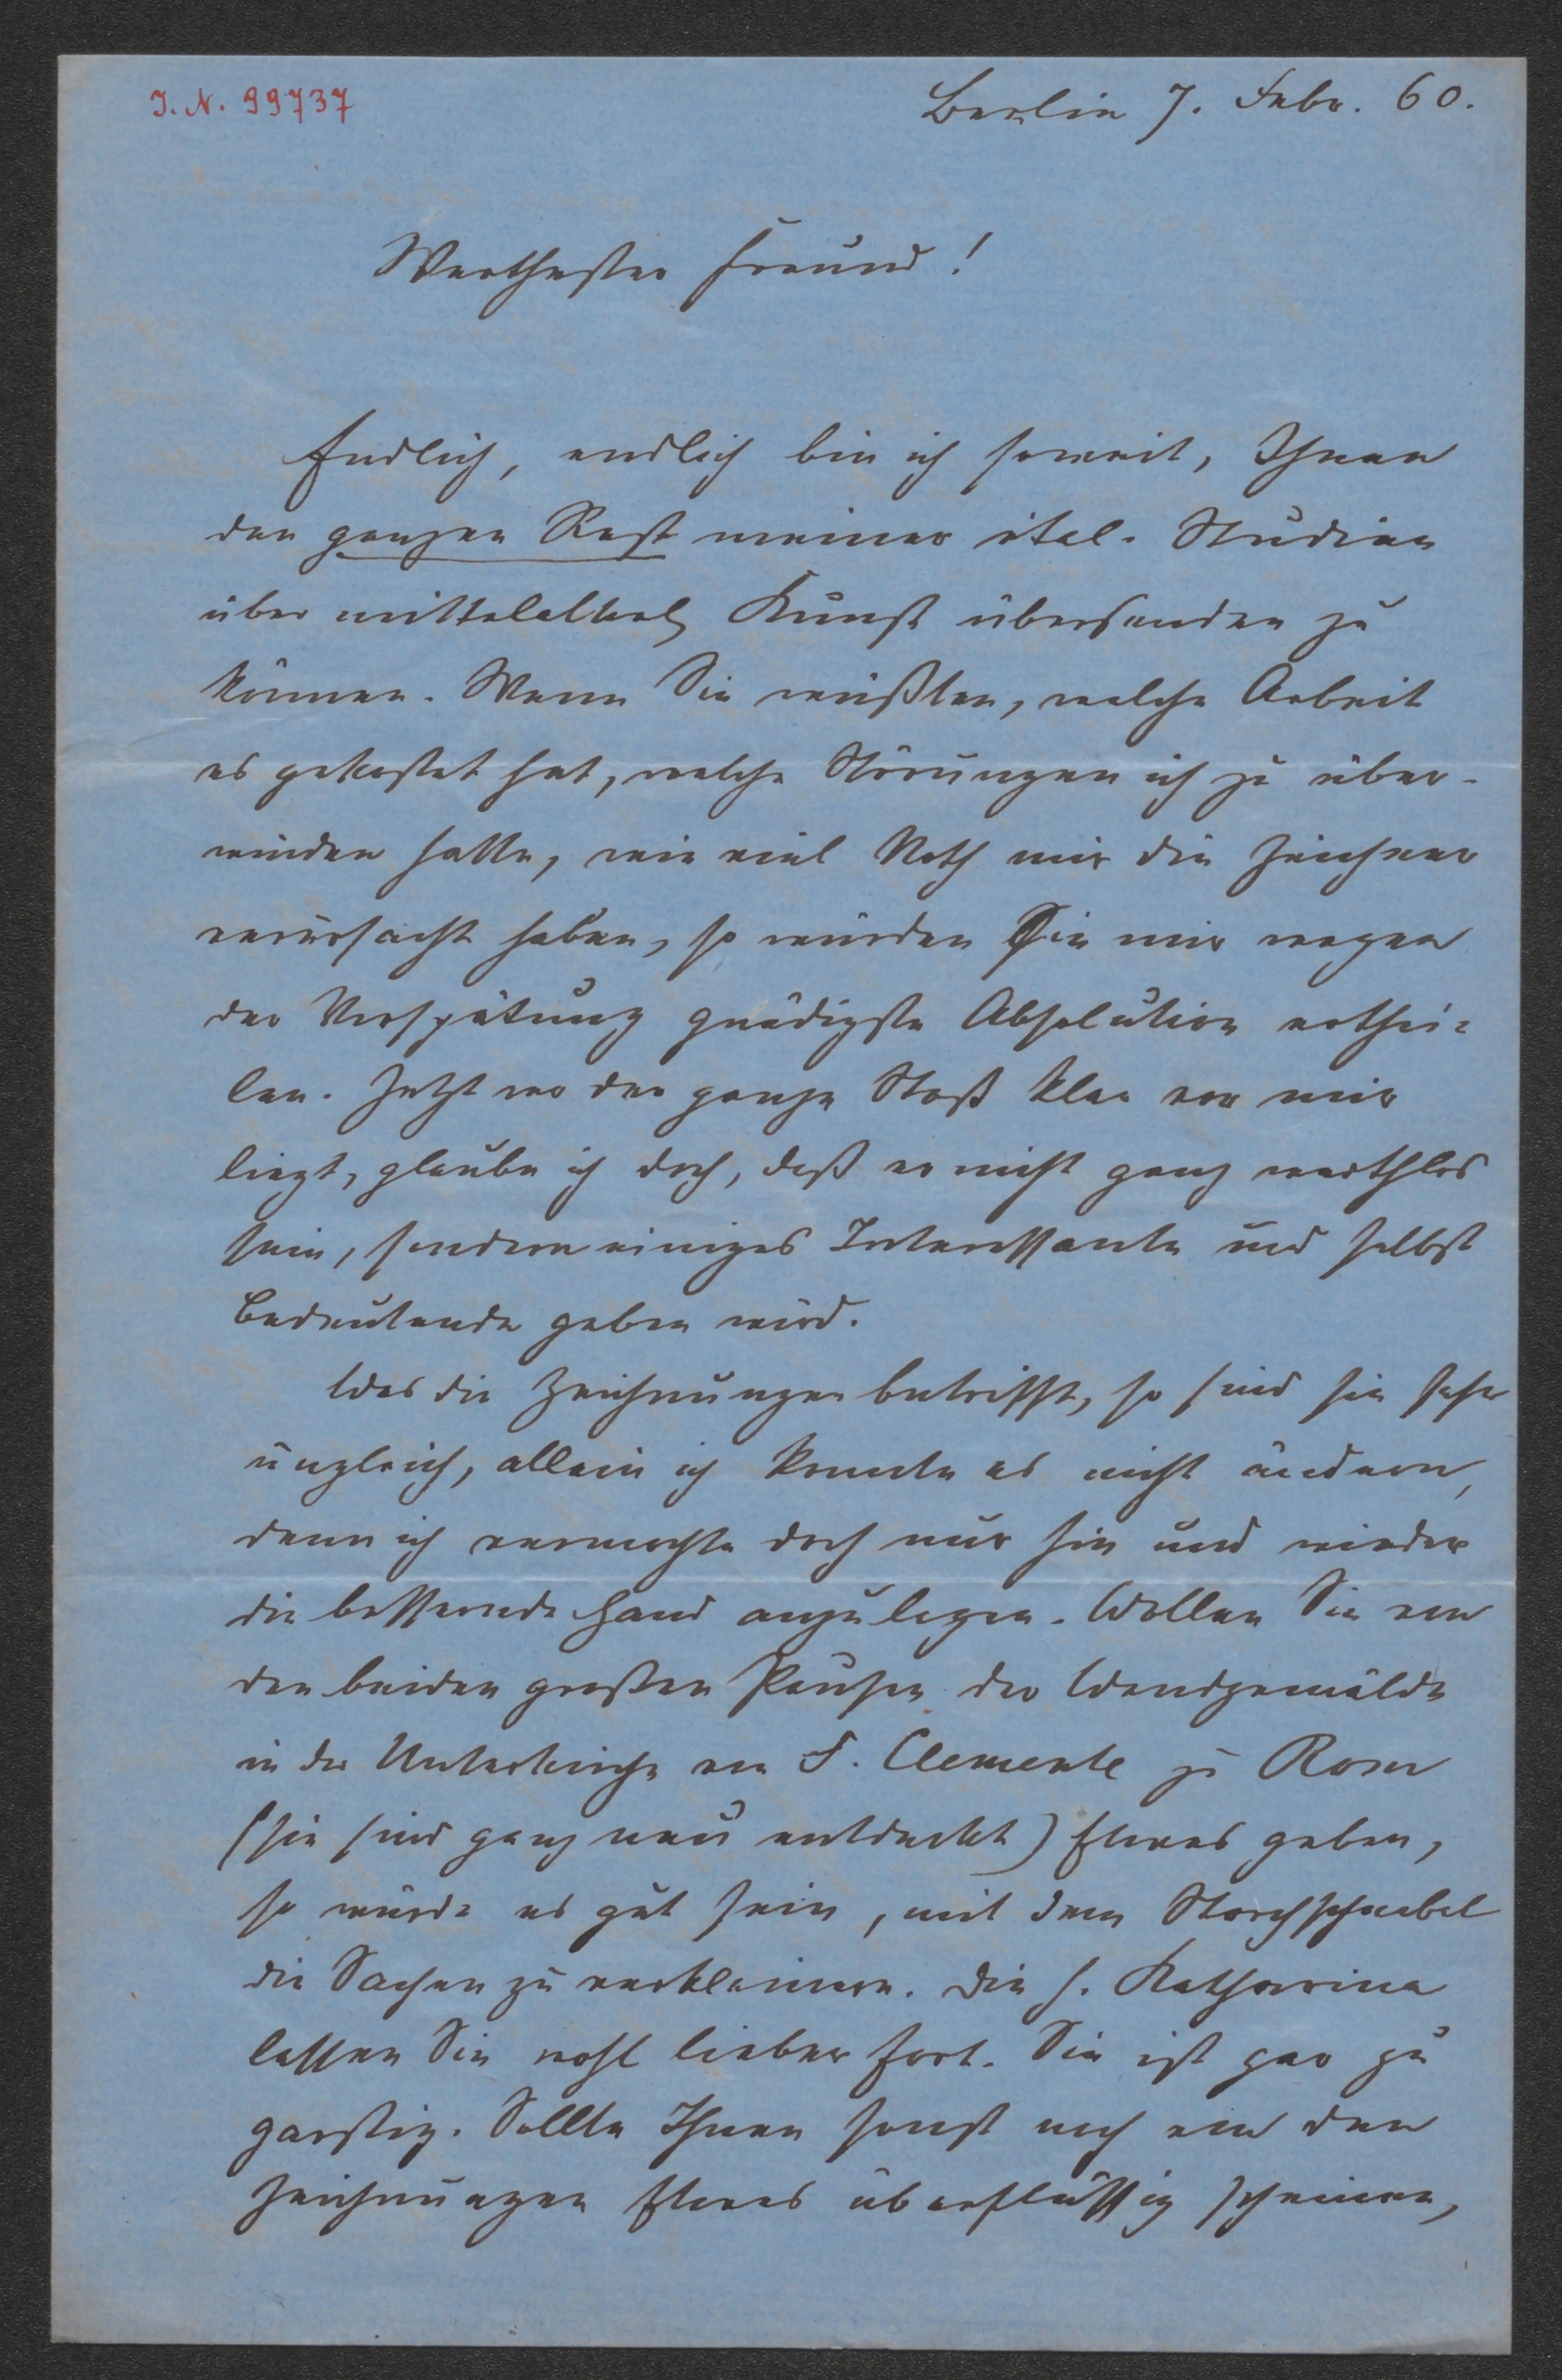 J. N. 99737
Berlin 7. Febr. 60.
Werthester Freund!
Endlich, endlich bin ich soweit, Ihnen
den ganzen Rest meiner ital. Studien
über mittelalterl. Kunst übersenden zu
können. Wenn Sie wüßten, welche Arbeit
es gekostet hat, welche Störungen ich zu über-
winden hatte, wie viel Noth mir die Zeichner
verursacht haben, so würden Sie mir wegen
der Verspätung gnädigste Absolution erthei-
len. Jetzt wo der ganze Stoß klar vor mir
liegt, glaube ich doch, daß er nicht ganz werthlos
sein, sondern einiges Interessante und selbst
Bedeutende geben wird.
Was die Zeichnungen betrifft, so sind sie sehr
ungleich, allein ich konnte es nicht ändern,
denn ich vermochte doch nur hin und wieder
die bessernde Hand anzulegen. Wollen Sie von
den beiden großen Pausen der Wandgemälde
in der Unterkirche von S. Clemente zu Rom
(sie sind ganz neu entdeckt) Etwas geben,
so würde es gut sein, mit dem Storchschnabel
die Sachen zu verkleinern. Die h. Katharina
lassen Sie wohl lieber fort. Sie ist gar zu
garstig. Sollte Ihnen sonst noch von den
Zeichnungen Etwas überflüssig scheinen,